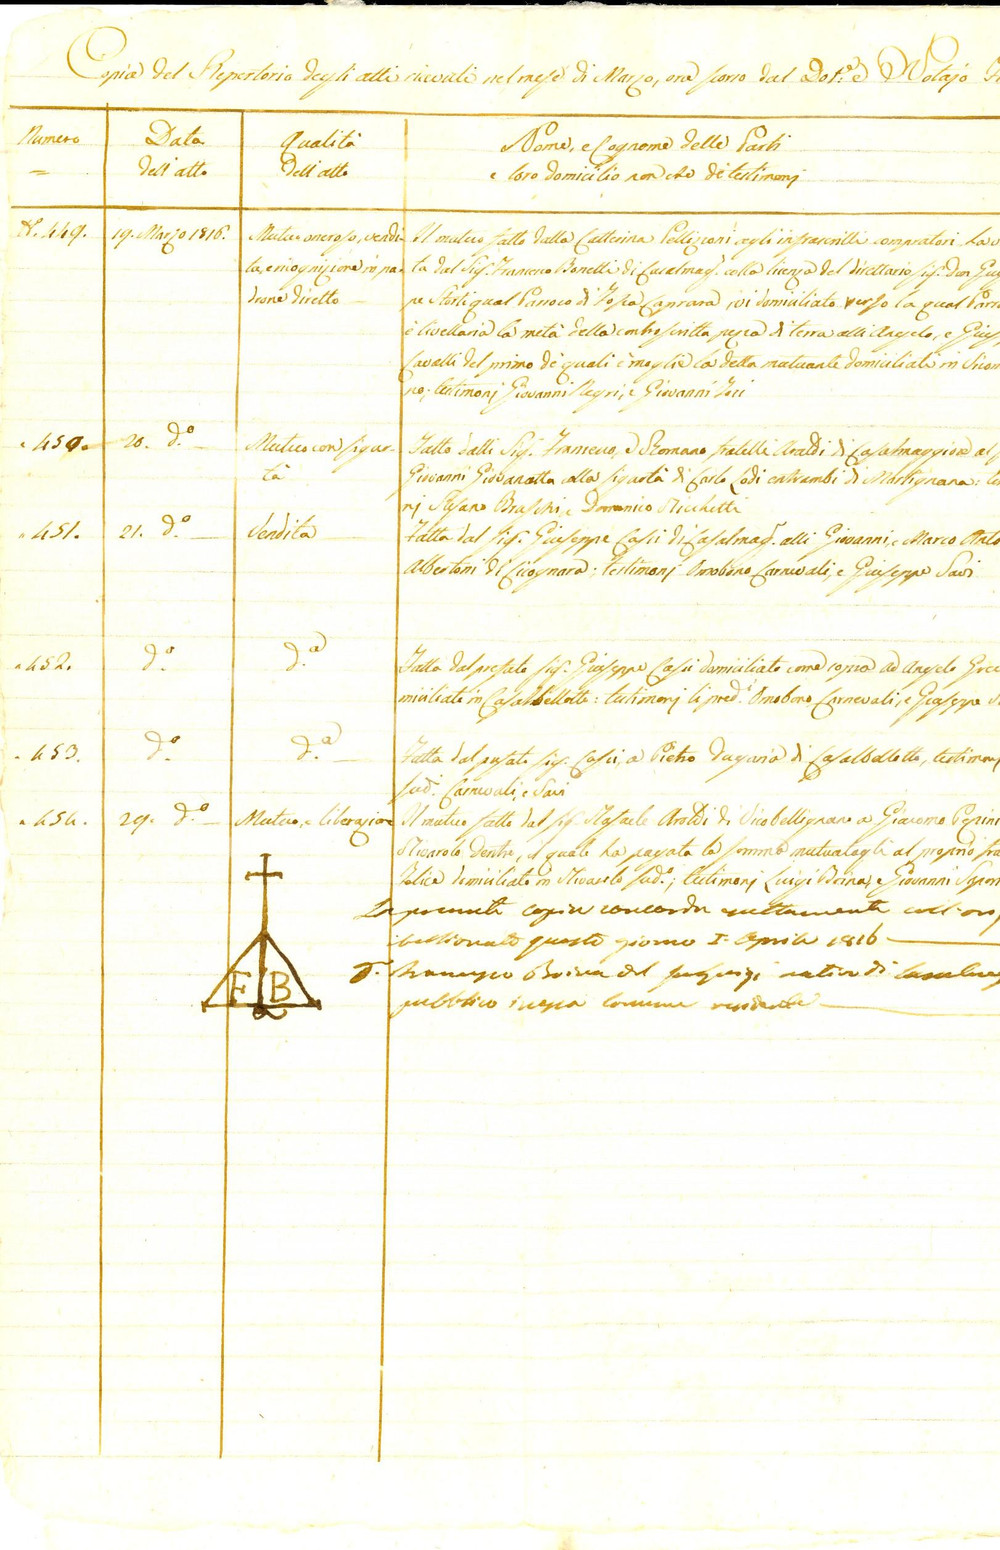 Copia del Repertorio degli atti ricevuti nel mese di Marzo, ora scorso dal Dot.e Notajo
Numero
Data dell'atto
Qualità dell'atto
Nome, e Cognome delle Parti
e loro domicilio non che de testimonj
N. 449. 19. Marzo 1816. Mutuo oneroso, vendi- Il mutuo fatto dalla Catterina Pellizzoni agli infrascritti compratori. La
ta, e ricognizione in pa- ta dal Sig. Francesco Bonetti di Casalmag. colla licenza del direttario sig. Don Giu
drone diretto pe Storti qual Parroco di Fossa Caprara ivi domiciliato verso la qual Parro
è livellaria la metà della controscritta pezza di terra alli Angelo, e Gius
Cavalli del primo de quali è moglie la detta mutuante domiciliati in
no; testimonj Giovanni Negri, e Giovanni
" 450. 20. d.o Mutuo con sigur- Fatto dalli Sig. Francesco, e Romano fratelli Araldi di Casalmaggiore al
tà Giovanni alla sigurtà di Carlo Lodi entrambi di Martignana: te
nj Stefano Braschi, e Domenico Micchetti
" 451. 21. d.o Vendita Fatta dal Sig. Giuseppe Casi di Casalmag. alli Giovanni, e Marco Anto
Albertoni di Cicognara; testimonj Omobono Carnevali, e Giuseppe Savi
" 452. d.o d.a Fatta dal prefato Sig. Giuseppe Casi domiciliato come sopra ad Angelo
miciliato in Casalbellotto: testimonj li pred.i Omobono Carnevali, e Giuseppe
" 453. d.o d.a Fatta dal prefato sig. Casi, a Pietro di Casalbellotto, testimonj
sud.i Carnevali, e Savi
" 454. 29. d.o Mutuo, e liberazione Il mutuo fatto dal sig. Rafaele Araldi di Vicobellignano a Giacomo
Rivarolo dentro, il quale ha pagata la somma mutuatagli al proprio
Felice domiciliato in Rivarolo sud.; testimonj Luigi e Giovanni
La presente copia concorda esattamente coll'
questo giorno I. Aprile 1816
F B
D. Francesco Boina del
pubblico in essa Comune residente